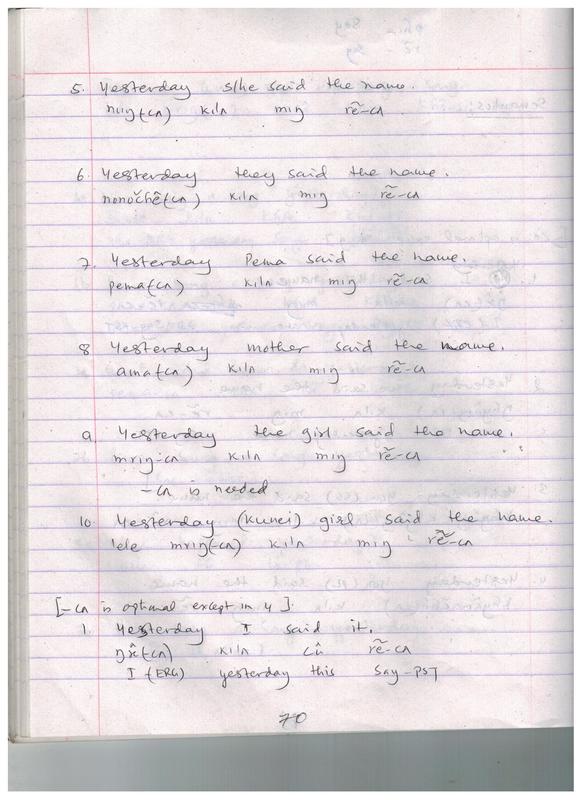 5. Yesterday s/he said the name.
nuŋ(cʌ) kilʌ miŋ rẽ-cʌ
6. Yesterday they said the name.
kilʌ miŋ rẽ-cʌ
7. Yesterday Pema said the name.
pema(cʌ) kilʌ miŋ rẽ-cʌ
8 Yesterday mother said the name.
ama(cʌ) kilʌ miŋ rẽ-cʌ
9 Yesterday the girl said the name.
mriŋ-cʌ kilʌ miŋ rẽ-cʌ
-cʌ is needed
10. Yesterday (kunei) girl said the name.
lele mriŋ(-cʌ) kilʌ miŋ rẽ-cʌ
[-cʌ is optional except in 4].
1. Yesterday I said it.
kilʌ cû rẽ-cʌ
I (ERG) yesterday this say-PST
70